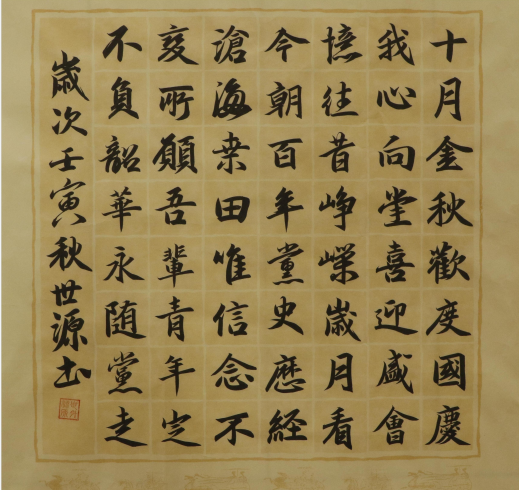 十月金秋歡度國慶
我心向堂喜迎盛會
憶往昔崢嶸歲月看
今朝百年黨史歷經
滄海桒田唯信念不
变所願吾輩青年定
不負韶華永随黨走
歲次壬寅秋世源书